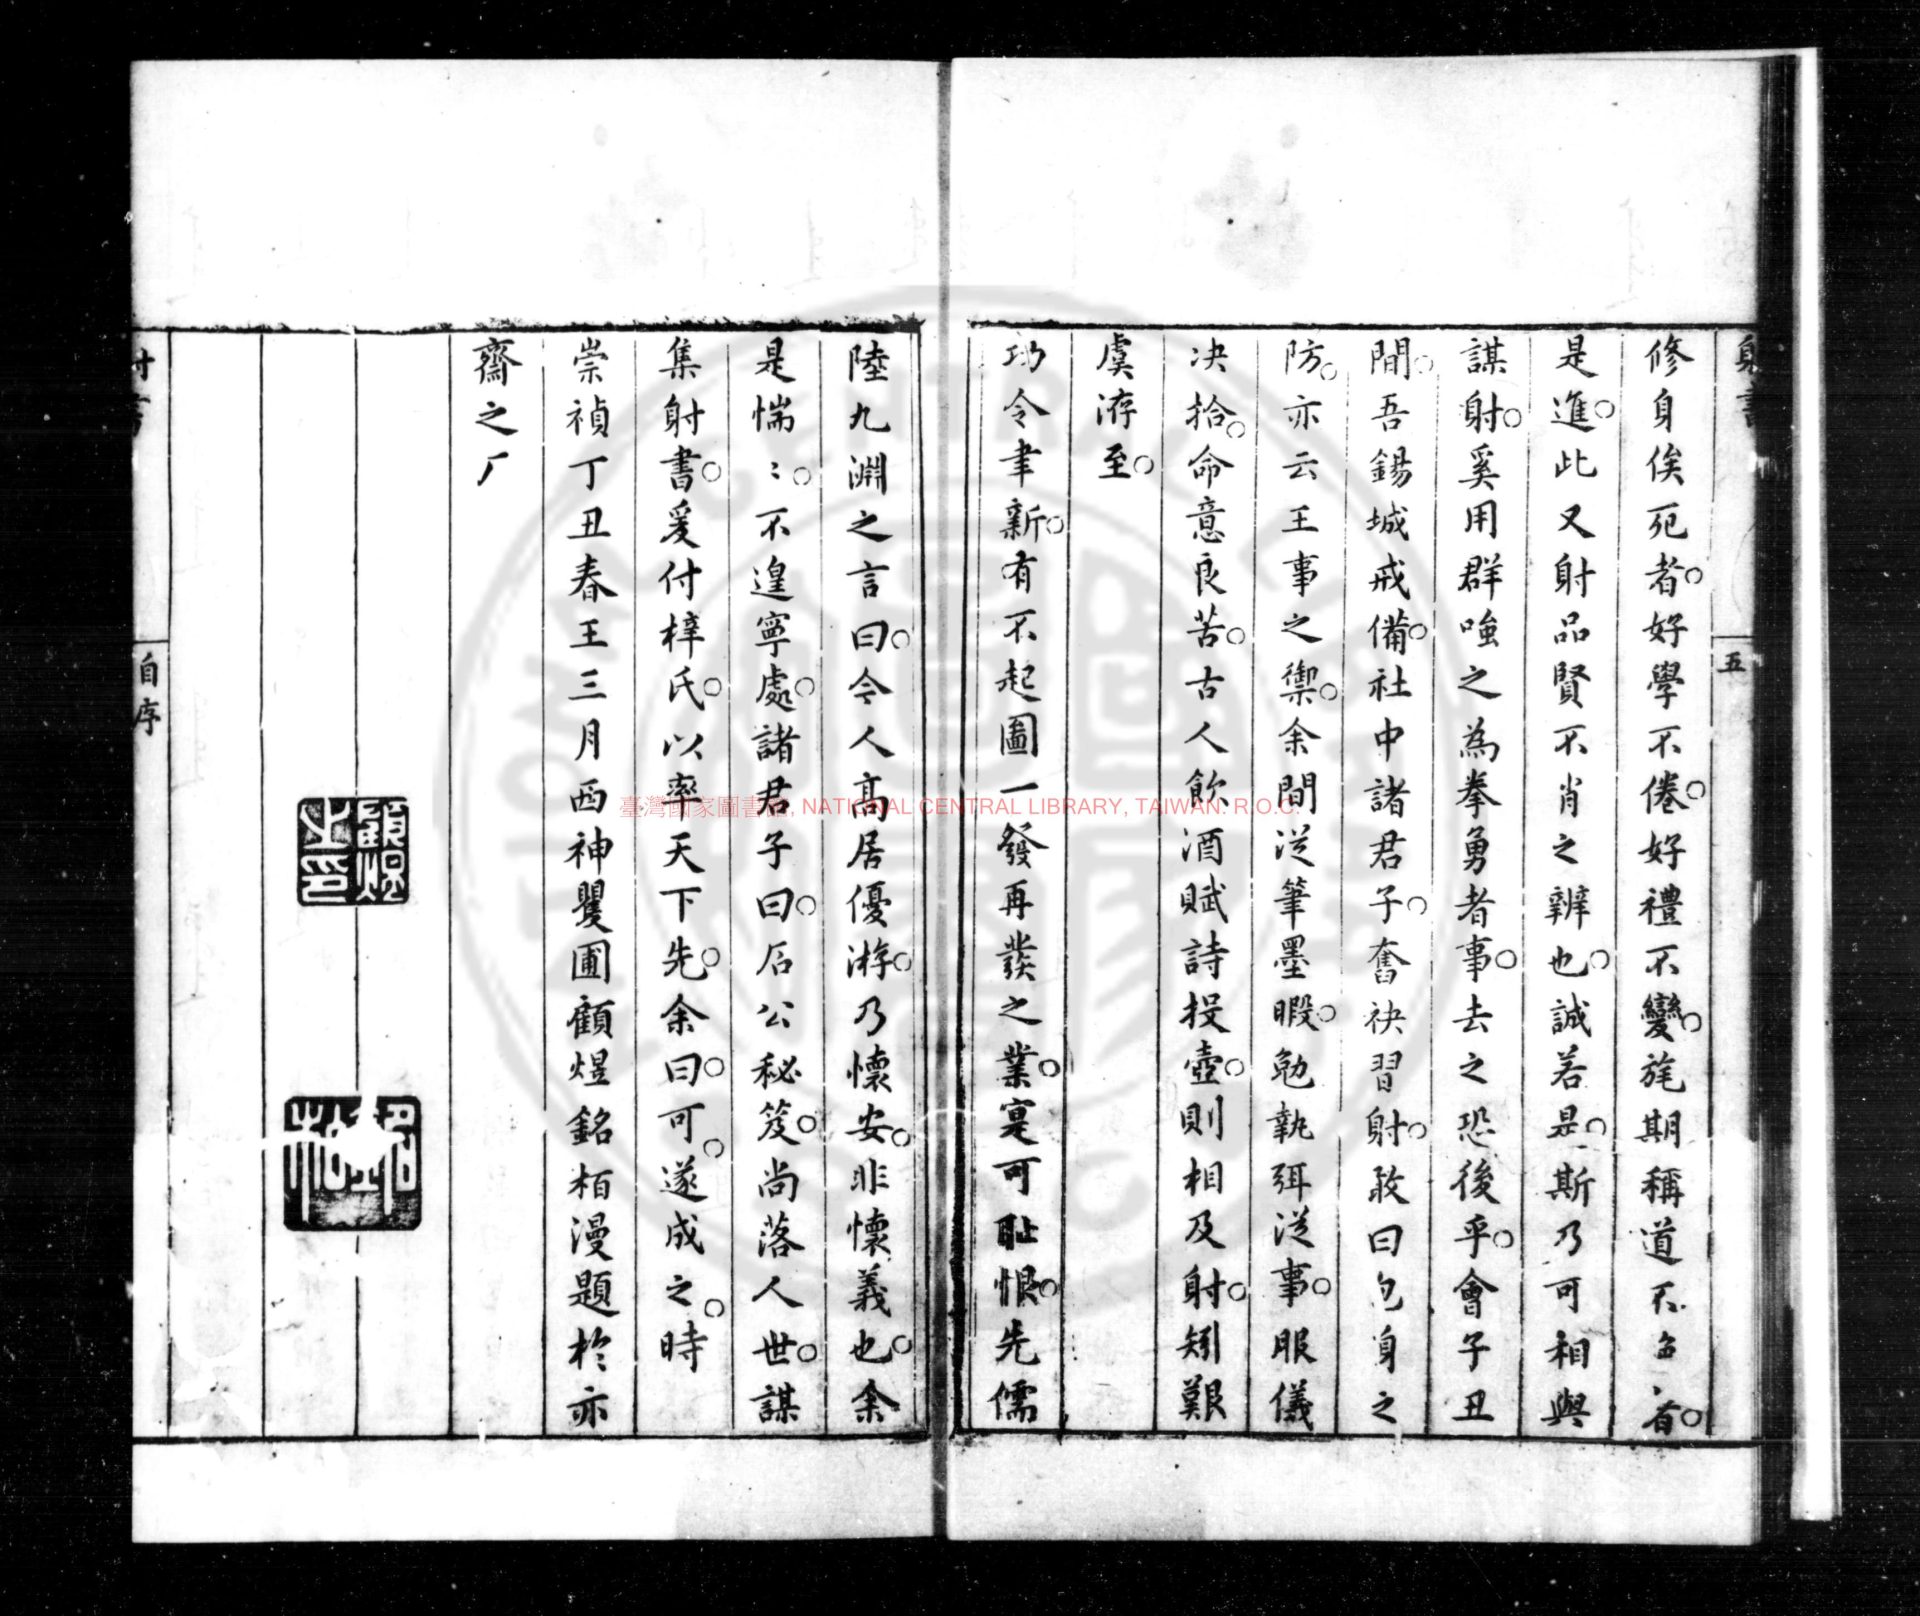 射書
五
修身俟死者好學不倦好禮不變旄期稱道不者
是進此又射品賢不肖之辨也誠若是斯乃可相與
謀射奚用群嗤之為拳勇者事去之恐後乎會子丑
間吾錫城戒備社中諸君子奮袂習射敢曰包身之
防亦云王事之禦余間從筆墨暇勉執弭從事服儀
決拾命意良苦古人飲酒賦詩投壺則相及射矧艱
虞洊至
功令聿新有不起圖一發再發之業寔可恥恨先儒
陸九淵之言曰今人高居優游乃懷安非懷義也余
是惴〻不遑寧處諸君子曰石公秘笈尚落人世謀
集射書爰付梓氏以率天下先余曰可遂成之時
崇禎丁丑春王三月西神矍圃顧煜銘栢漫題於亦
齋之厂
顧煜之印
銘栢
射書
自序
臺灣國家圖書館, NATIONAL CENTRAL LIBRARY, TAIWAN. R.O.C.